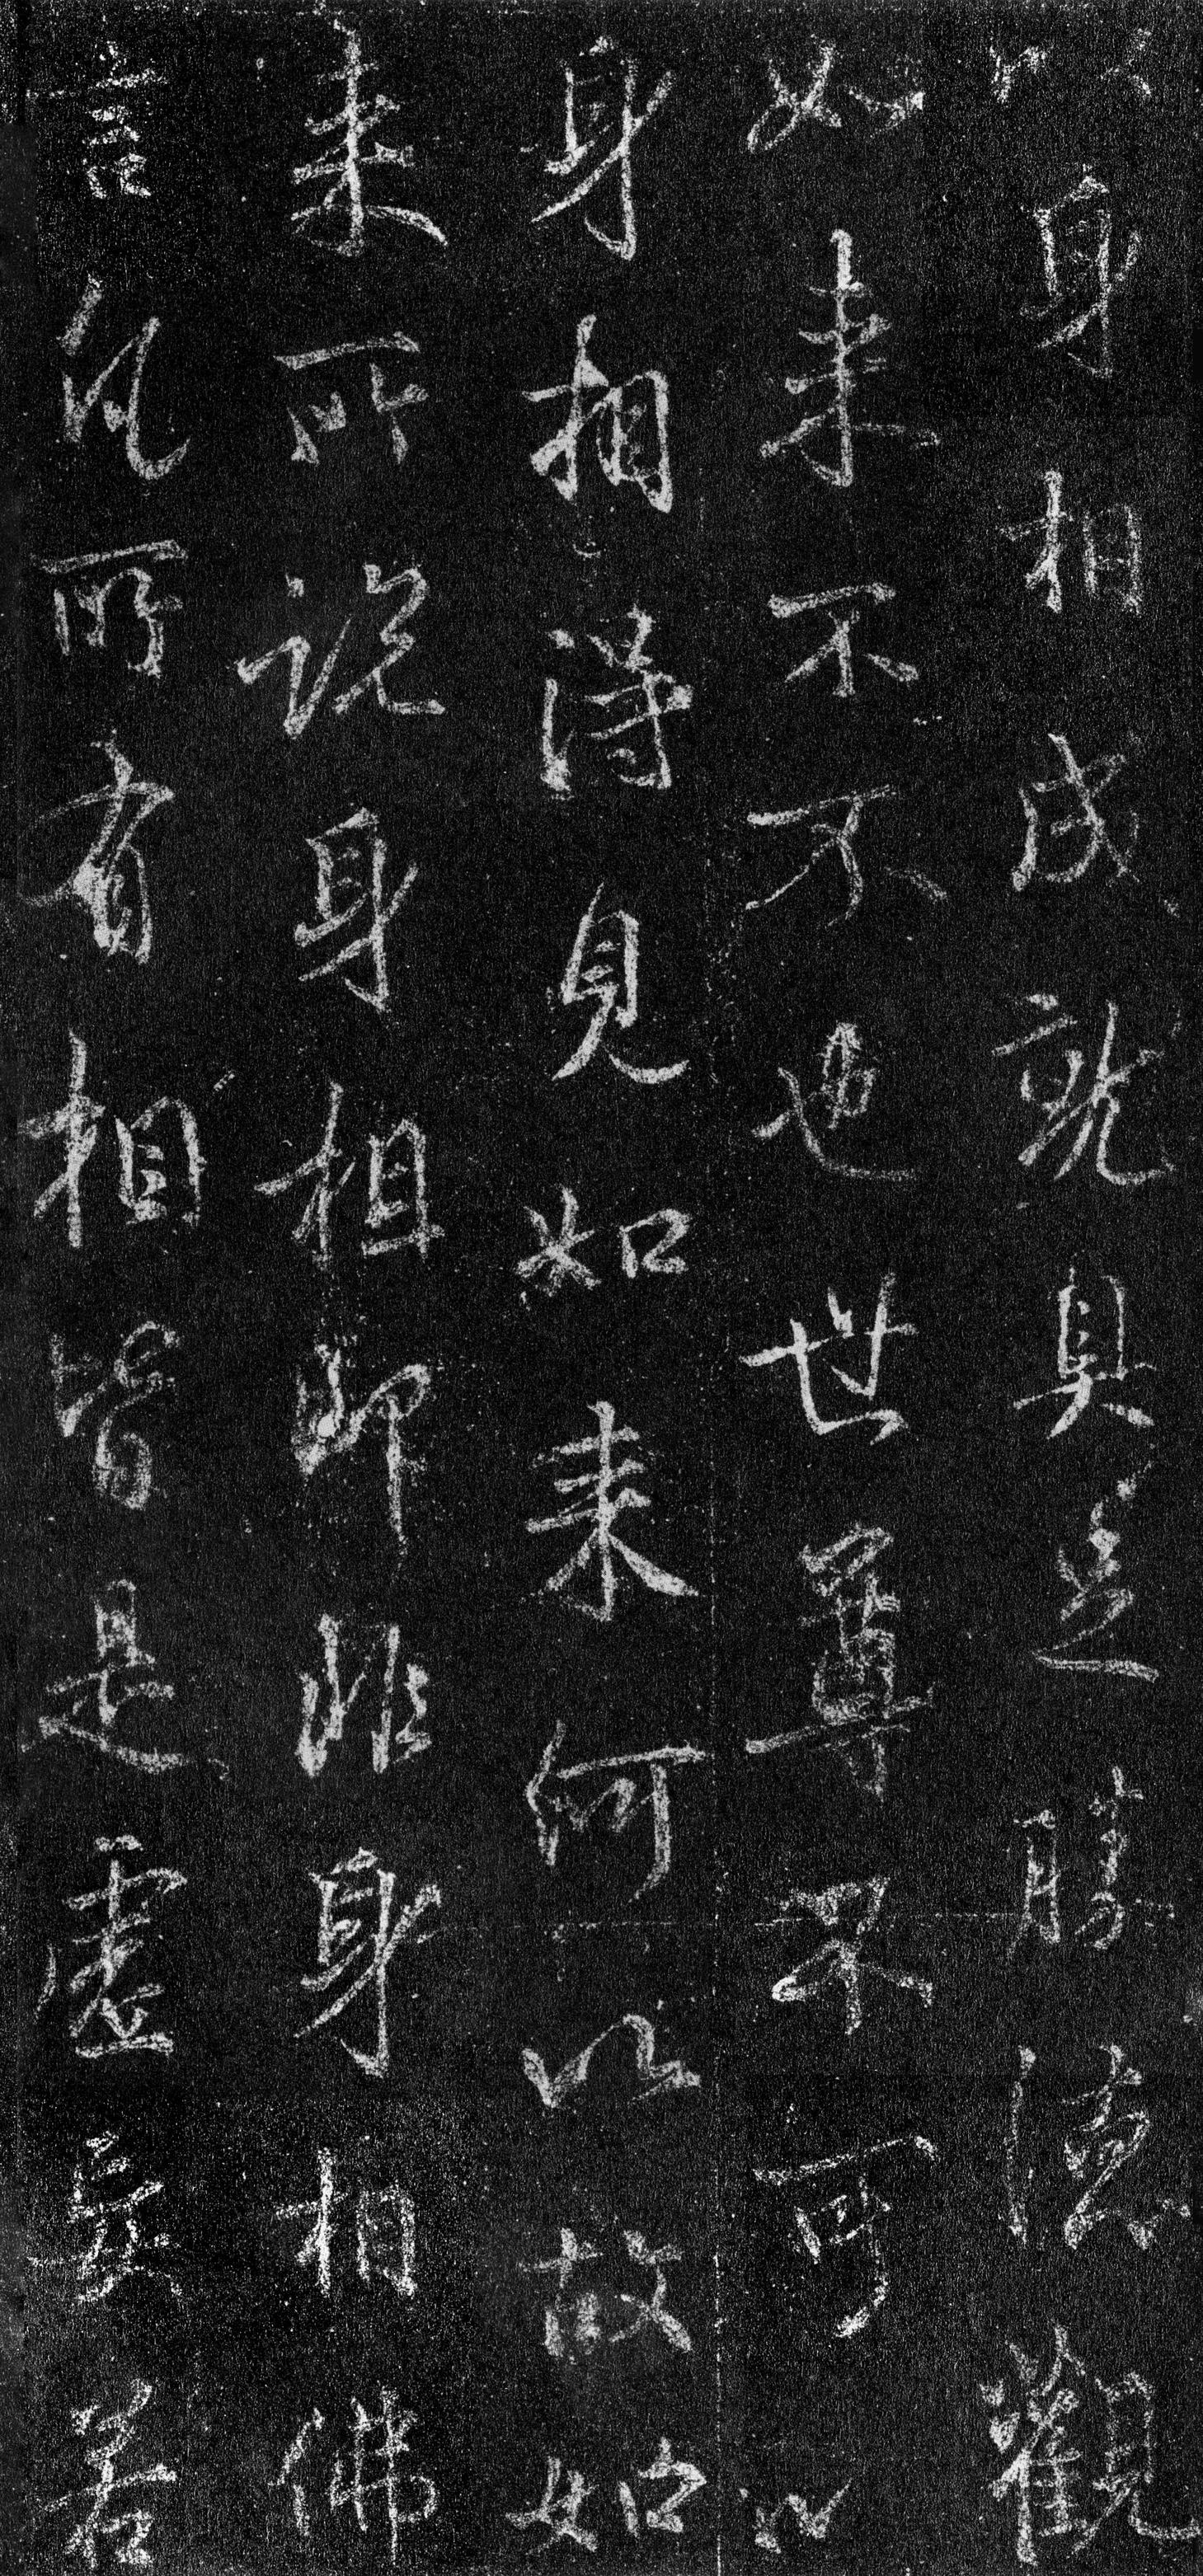 以身相成就具足勝德觀
如来不不也世尊不可以
身相得見如来何以故如
来所説身相即非身相佛
言凡所有相皆是虛妄若